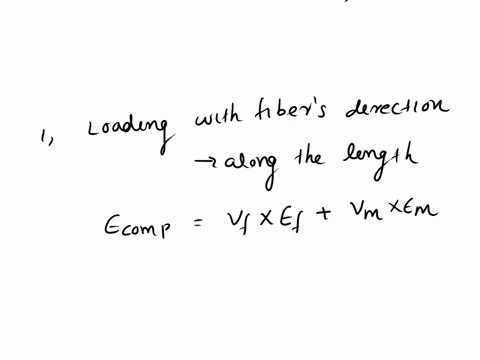 1, Loading with fiber's direction
→ along the length
Ecomp = Vf × Ef + Vm × Em